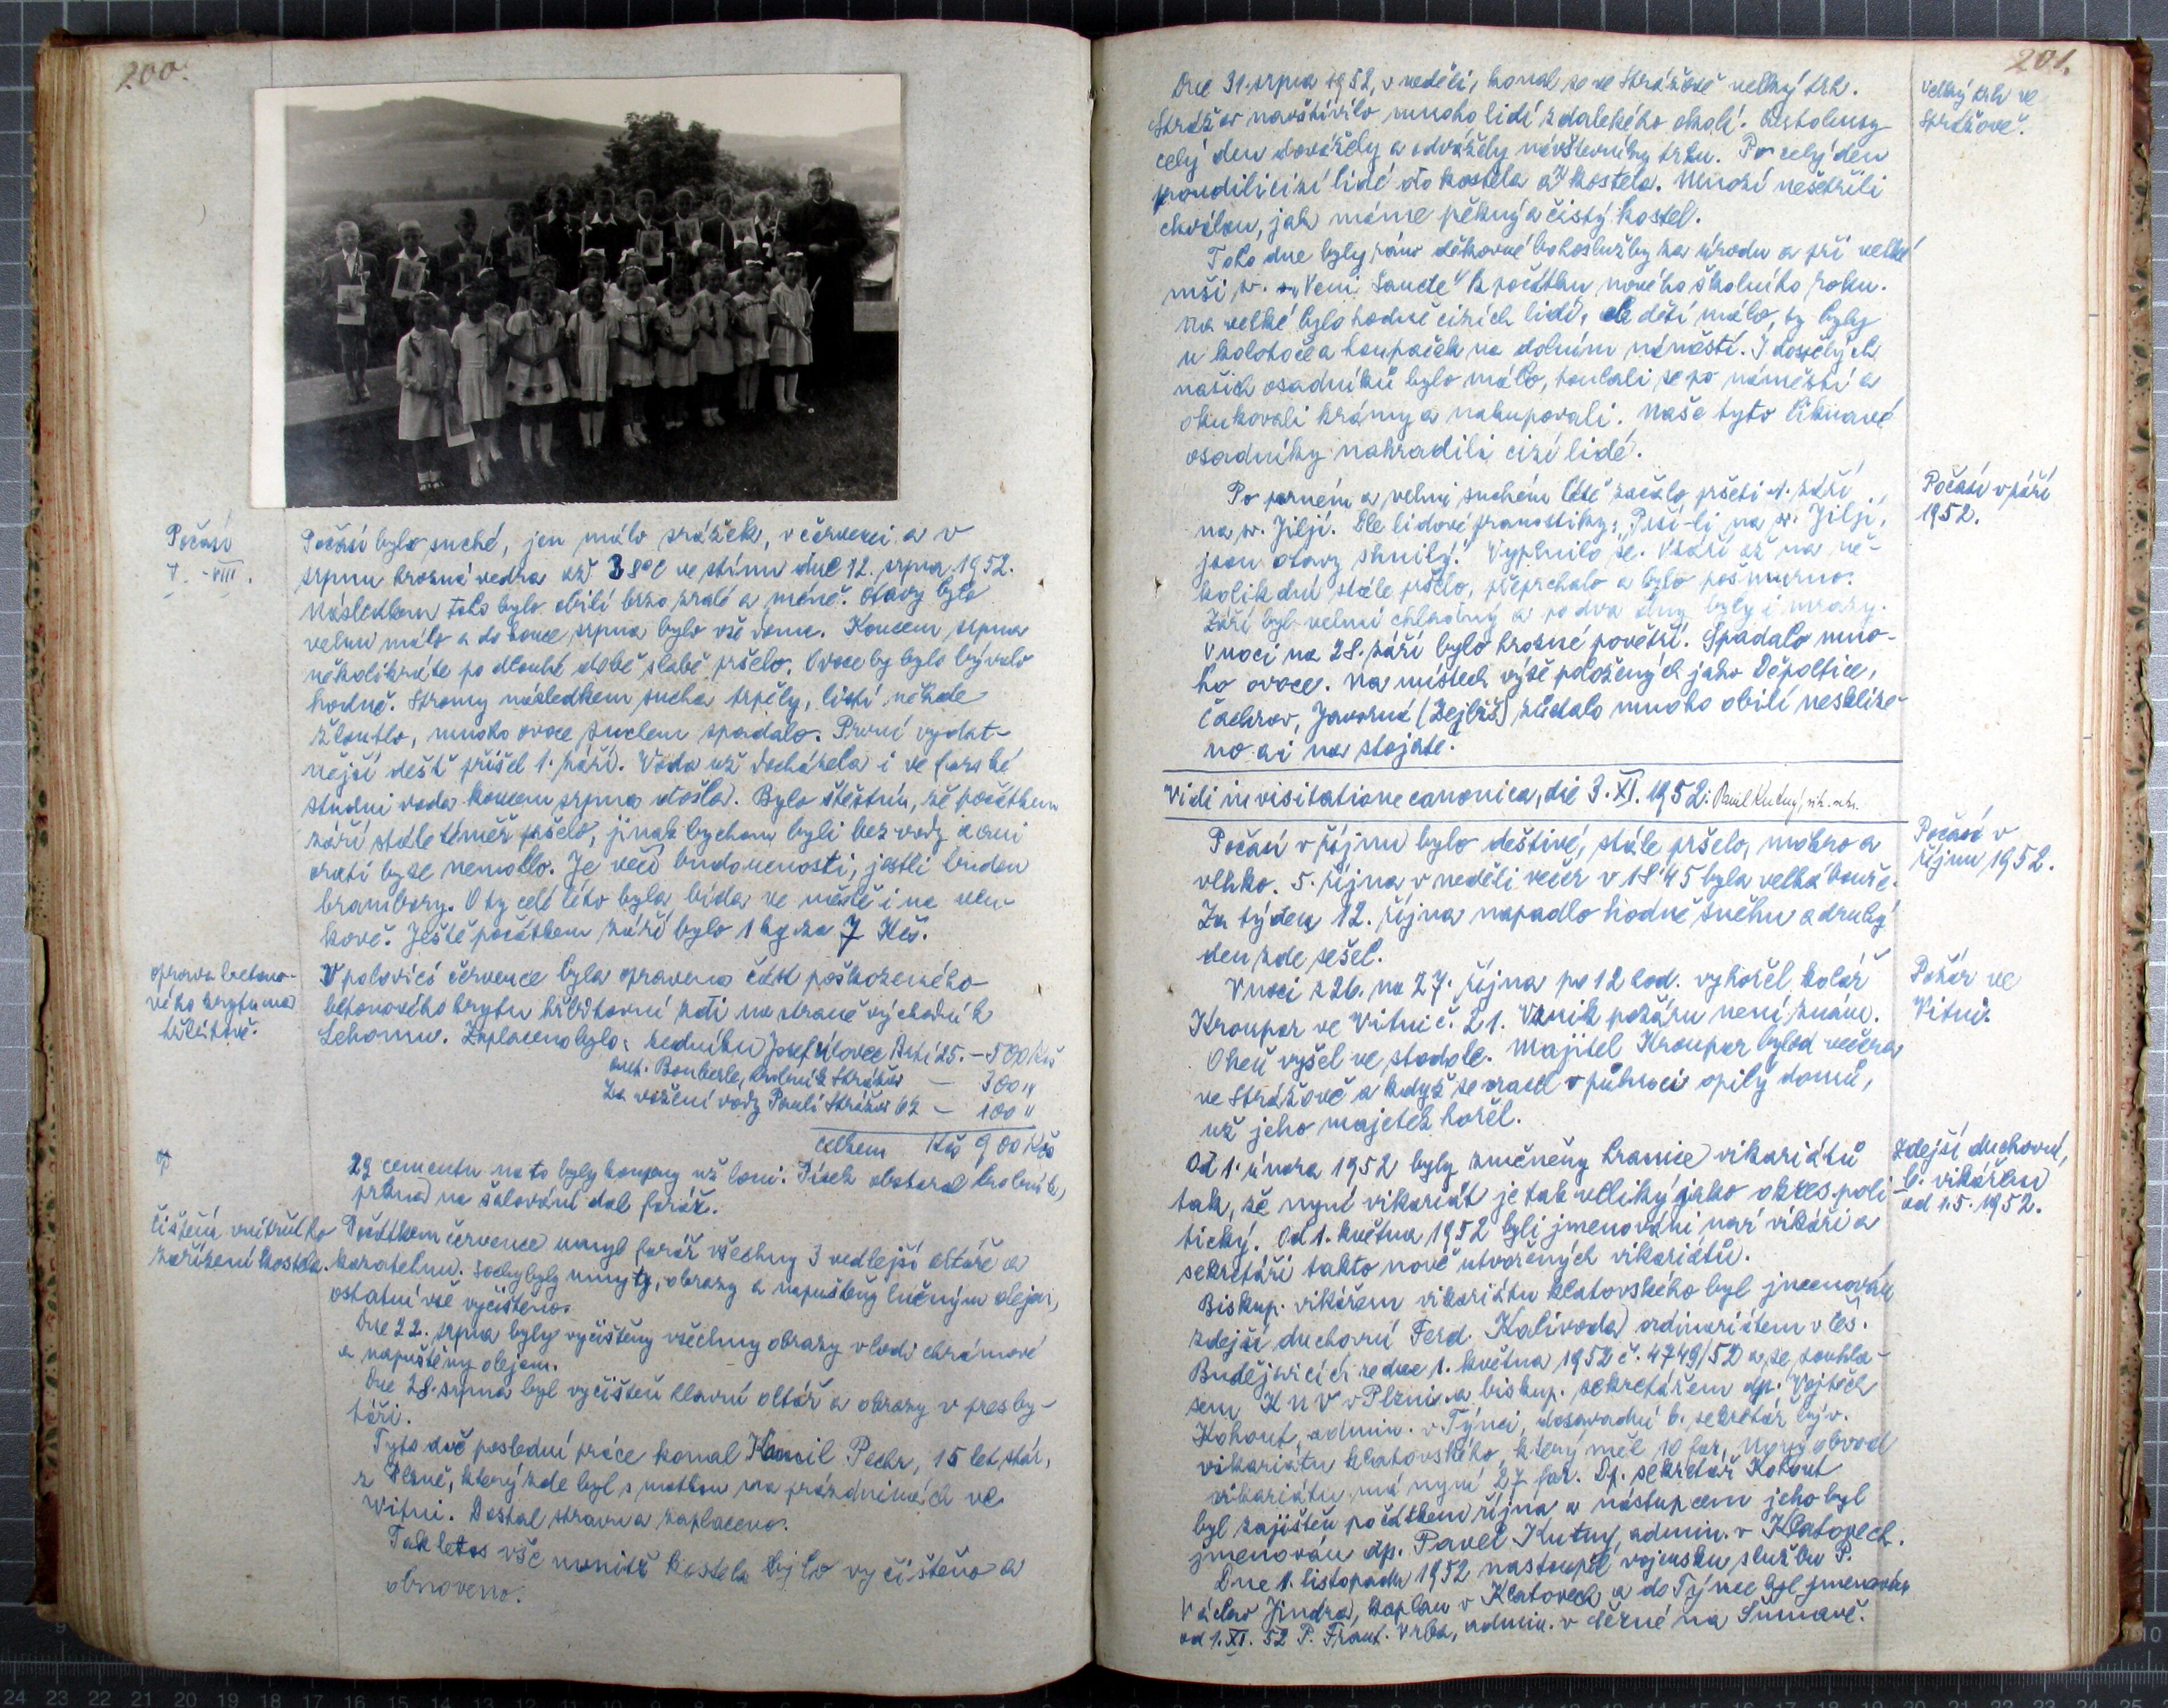 200.
Počasí
V. - VIII.
Počasí bylo suché, jen málo srážek, v červenci a v
srpnu hrozná vedra až 38°C ve stínu dne 12. srpna 1952.
Následkem toho bylo obilí brzo zralé a méně. Otavy bylo
velmi málo a do konce srpna bylo vše doma. Koncem srpna
několikráte po dlouhé době slabě pršelo. Ovoce by bylo bývalo
hodně. Stromy následkem sucha trpěly, listí někde
žloutlo, mnoho ovoce suchem spadalo. První vydat-
nější déšť přišel 1. září. Voda už docházela i ve farské
studni voda koncem srpna došla. Bylo štěstím, že počátkem
září stále téměř pršelo, jinak bychom byli bez vody a ani
orati by se nemohlo. Je věcí budoucnosti, jestli budou
brambory. O ty celé léto byla bída ve městě i na ven-
kově. Ještě počátkem září bylo 1 kg za 7 Kčs.
oprava betono-
vého krytu na
hřbitově.
V polovici července byla opravena část poškozeného
betonového krytu hřbitovní zdi na straně východní k
Lehomu. Zaplaceno bylo: zedníku Josef 25. – 500 Kčs
Bouberle, hrobník Strážov – 300 "
Za vožení vody Pauli Strážov 62 – 100 "
celkem Kčs 900 Kčs
2q cementu na to byly koupeny už loni. Písek obstaral hrobník,
prkna na šalování dal farář.
čištění vnitřního
zařízení kostela.
Počátkem července umyl farář všechny 3 vedlejší oltáře a
kazatelnu. Sochy byly umyty, obrazy a napuštěny lněným olejem,
ostatní vše vyčištěno.
Dne 22. srpna byly vyčištěny všechny obrazy v lodi chrámové
a napuštěny olejem.
Dne 28. srpna byl vyčištěn hlavní oltář a obrazy v presby-
táři.
Tyto dvě poslední práce konal Kamil Pechr, 15 let stár,
z Plzně, který zde byl s matkou na prázdninách ve
Vítni. Dostal stravu a zaplaceno.
Tak letos vše uvnitř kostela bylo vyčištěno a
obnoveno.
201.
Dne 31. srpna 1952, v neděli, konal se ve Strážově velký trh.
Strážov navštívilo mnoho lidí z dalekého okolí. Autobusy
celý den dovážely a odvážely návštěvníky trhu. Po celý den
proudili cizí lidé do kostela a z kostela. Mnozí nešetřili
chválou, jak máme pěkný a čistý kostel.
Velký trh ve
Strážově.
Toho dne byly ráno děkovné bohoslužby za úrodu a při velké
mši sv. „Veni Sancte" k počátku nového školního roku.
Na velké bylo hodně cizích lidí, ale dětí málo, ty byly
u kolotoče a houpaček na dolním náměstí. I dospělých
našich osadníků bylo málo, toulali se po náměstí a
okukovali krámy a nakupovali. Naše tyto liknavé
osadníky nahradili cizí lidé.
Po parném a velmi suchém létě začalo pršeti 1. září
na sv. Jiljí. Dle lidové pranostiky: „Prší-li na sv. Jiljí,
jsou otavy shnilý." Vyplnilo se. V září až na ně-
kolik dní stále pršelo, přeprchalo a bylo pošmurno.
Září byl velmi chladný a po dva dny byly i mrazy.
V noci na 28. září bylo hrozné povětří. Spadalo mno-
ho ovoce. Na místech výše položených jako Děpoltice,
Čachrov, Javorná (Zejbiš) zůstalo mnoho obilí neskl​ize-
no a i na stojatě.
Počasí v září
1952.
Vidi in visitatione canonica, die 3. XI. 1952: Pavel Kutný, vik. sekr.
Počasí v říjnu bylo deštivé, stále pršelo, mokro a
vlhko. 5. října v neděli večer v 18'45 byla velká bouře.
Za týden 12. října napadlo hodně sněhu a druhý
den zde sešel.
Počasí v
říjnu 1952.
V noci z 26. na 27. října po 12 hod. vyhořel kolář
Kroupar ve Vítni č. 21. Vznik požáru není znám.
Oheň vyšel ve stodole. Majitel Kroupar byl od večera
ve Strážově a když se vracel v půlnoci opilý domů,
už jeho majetek hořel.
Požár ve
Vítni.
Od 1. února 1952 byly změněny hranice vikariátů
tak, že nyní vikariát je tak veliký jako okres poli-
tický. Od 1. května 1952 byli jmenováni noví vikáři a
sekretáři takto nově utvořených vikariátů.
Biskup. vikářem vikariátu klatovského byl jmenován
zdejší duchovní Ferd. Kalivoda ordinariátem v Čes.
Budějovicích ze dne 1. května 1952 č. 4749/52 a se souhla-
sem KNV v Plzni a biskup. sekretářem dp. Vojtěch
Kohout, admin. v Týnci, dosavadní b. sekretář býv.
vikariátu klatovského, který měl 10 far. Nový obvod
vikariátu má nyní 27 far. Dp. sekretář Kohout
byl zajištěn počátkem října a nástupcem jeho byl
jmenován dp. Pavel Kutný, admin. v Klatovech.
Dne 1. listopadu 1952 nastoupil vojenskou službu P.
Václav Jindra, kaplan v Klatovech a do Týnce byl jmenován
od 1. XI. 52 P. Frant. Vrba, admin. v Děrné na Šumavě.
Zdejší duchovní,
b. vikářem
od 1.5. 1952.